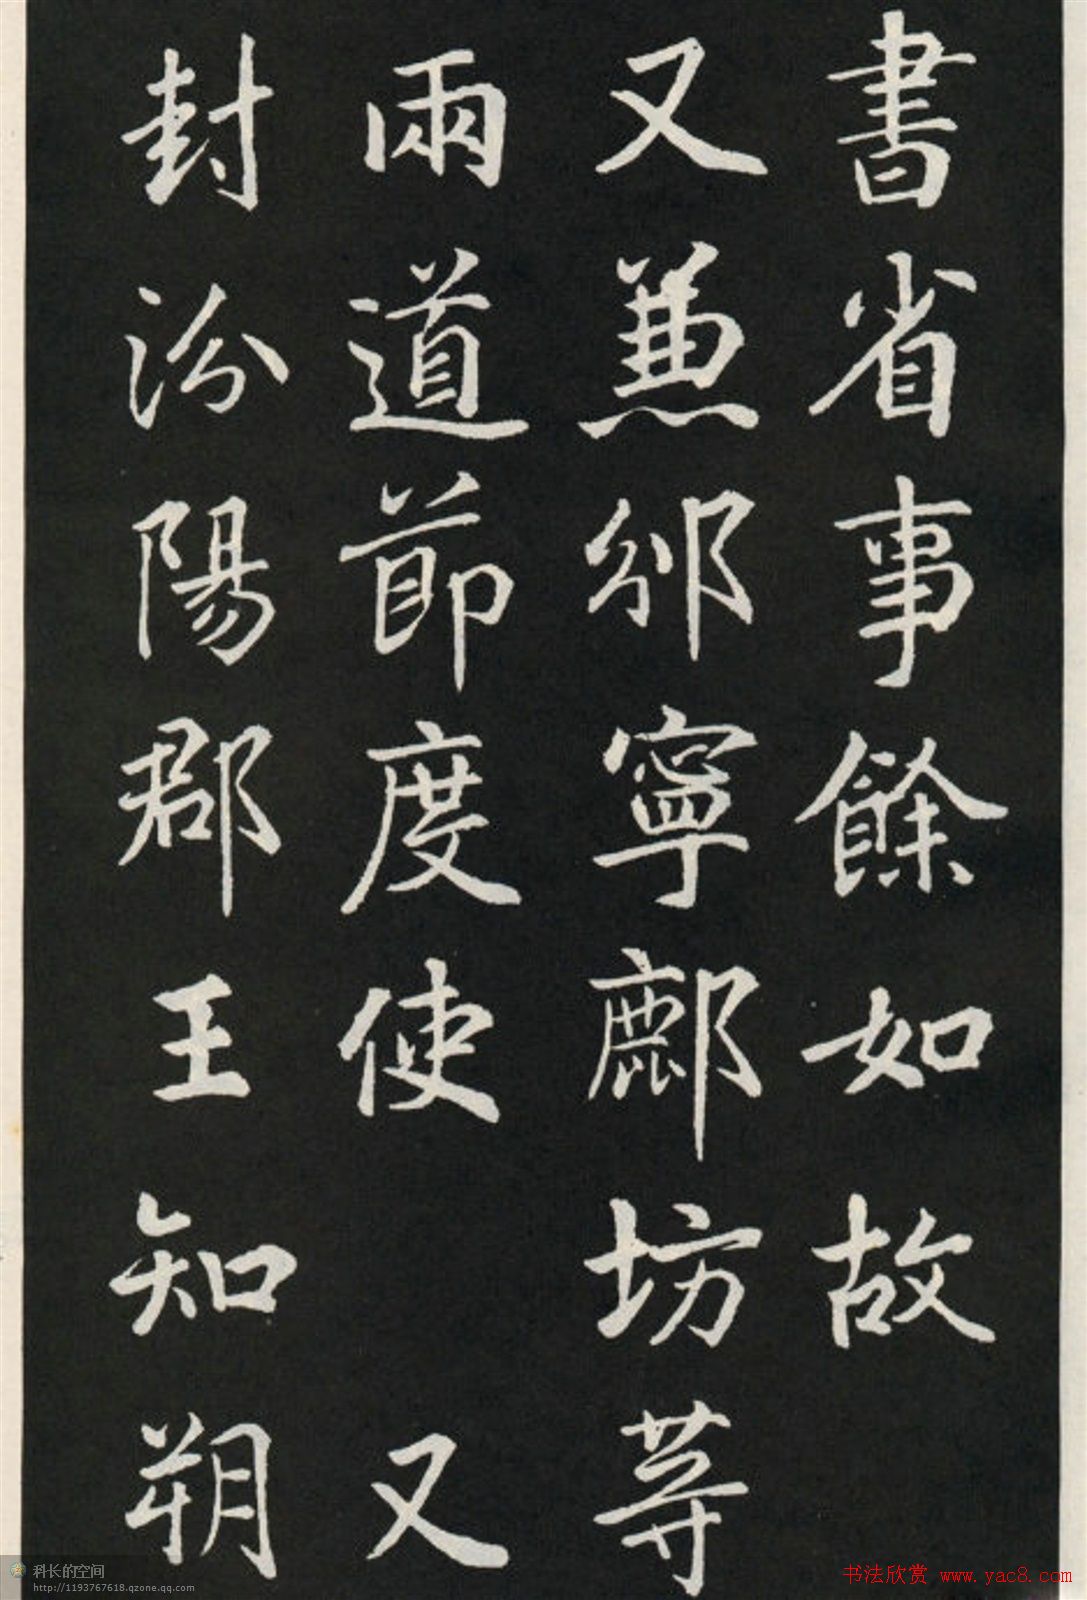 書省事餘如故
又兼邠寧鄜坊等
兩道節度使 又
封汾陽郡王知朔
科长的空间
http://1193767618.qzone.qq.com
书法欣赏 www.yac8.com